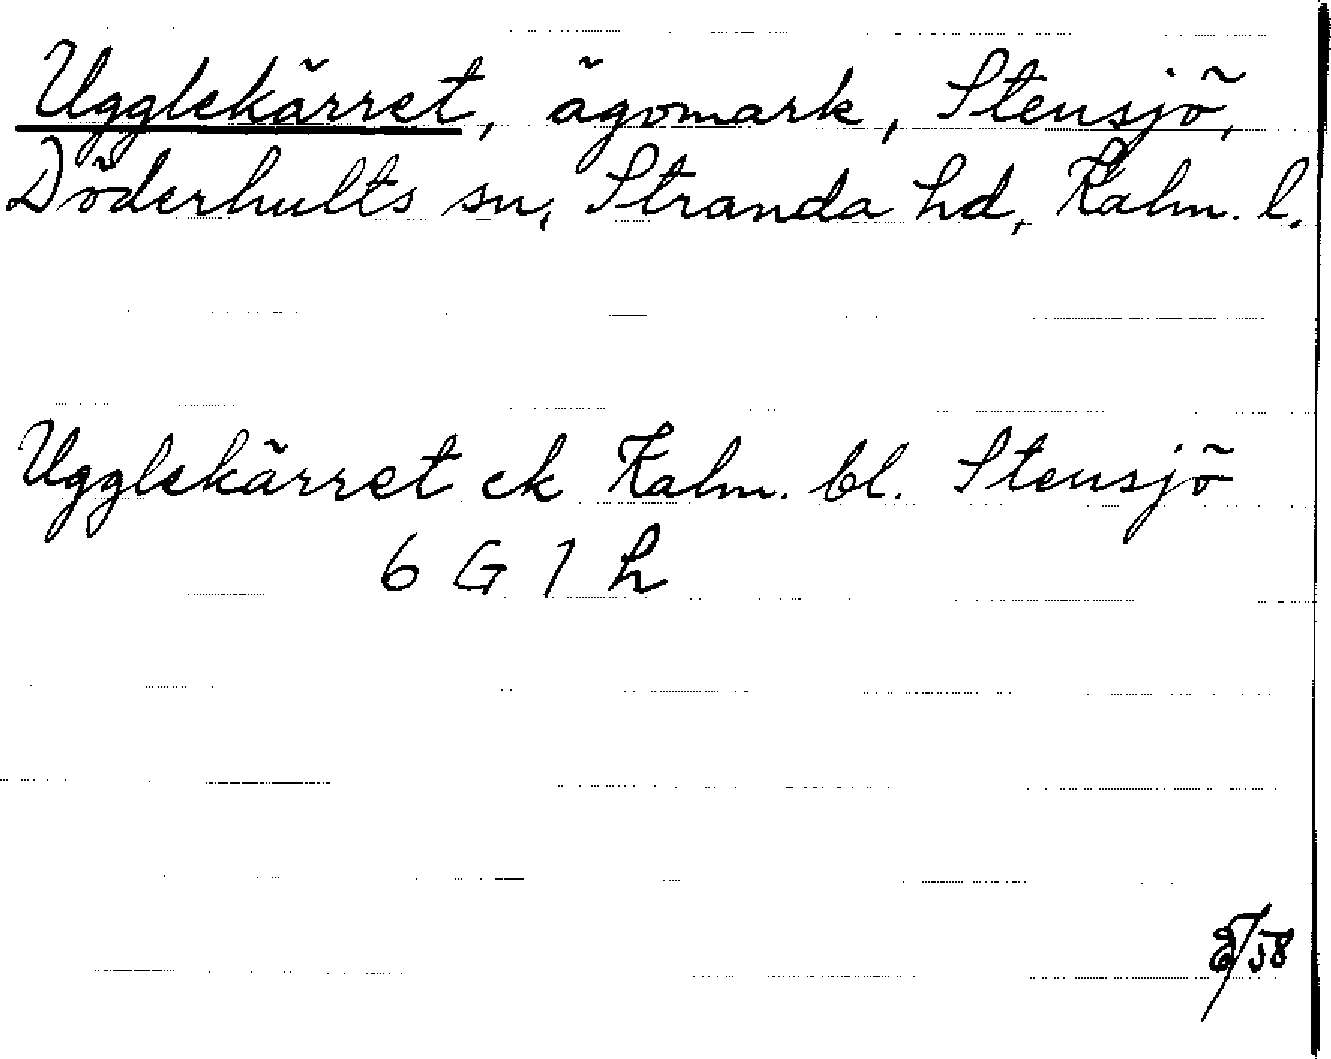 Ugglekärret, ägomark, Stensjö,
Döderhults sn, Stranda hd, Kalm. l.
Ugglekärret ek Kalm. bl. Stensjö
6 G 1 h